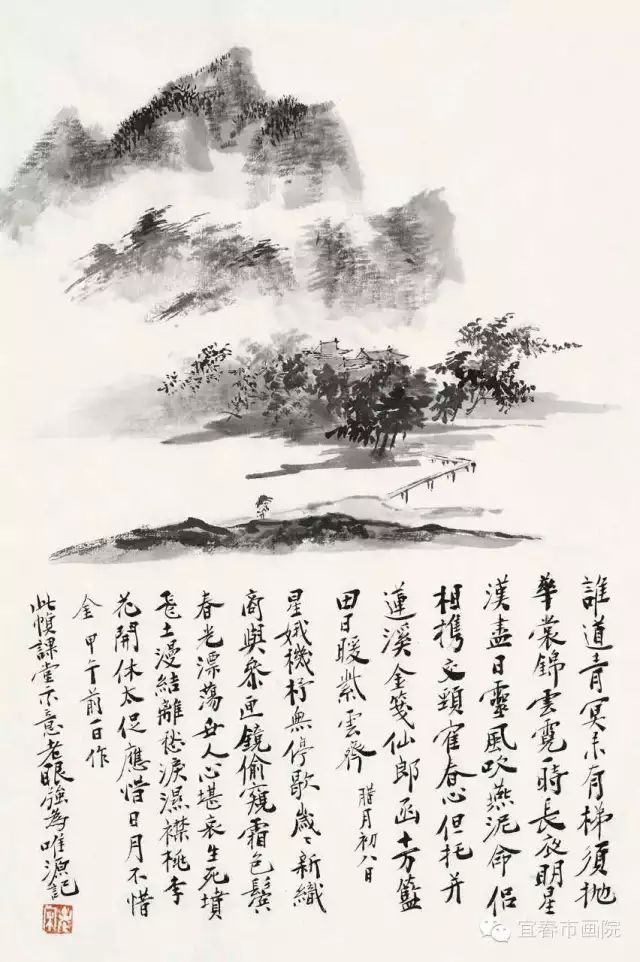 誰道青冥未有梯須拋
華裳錦雲霓一時長衣明星
漢盡日靈風吹燕泥命侶
相携交頸雀春心但托并
蓮溪金箋仙郎函十万籃
田日暖紫雲齊
腊月初八日
星娥機杼無停歇歲〻新織
商與參画鏡偷窺霜色鬢
春光漂蕩女人心堪哀生死墳
邑土漫結離愁淚濕襟桃李
花開休太促應惜日月不惜
金 甲午前一日作
此幀課堂示意老眼强為唯源記
宜春市画院